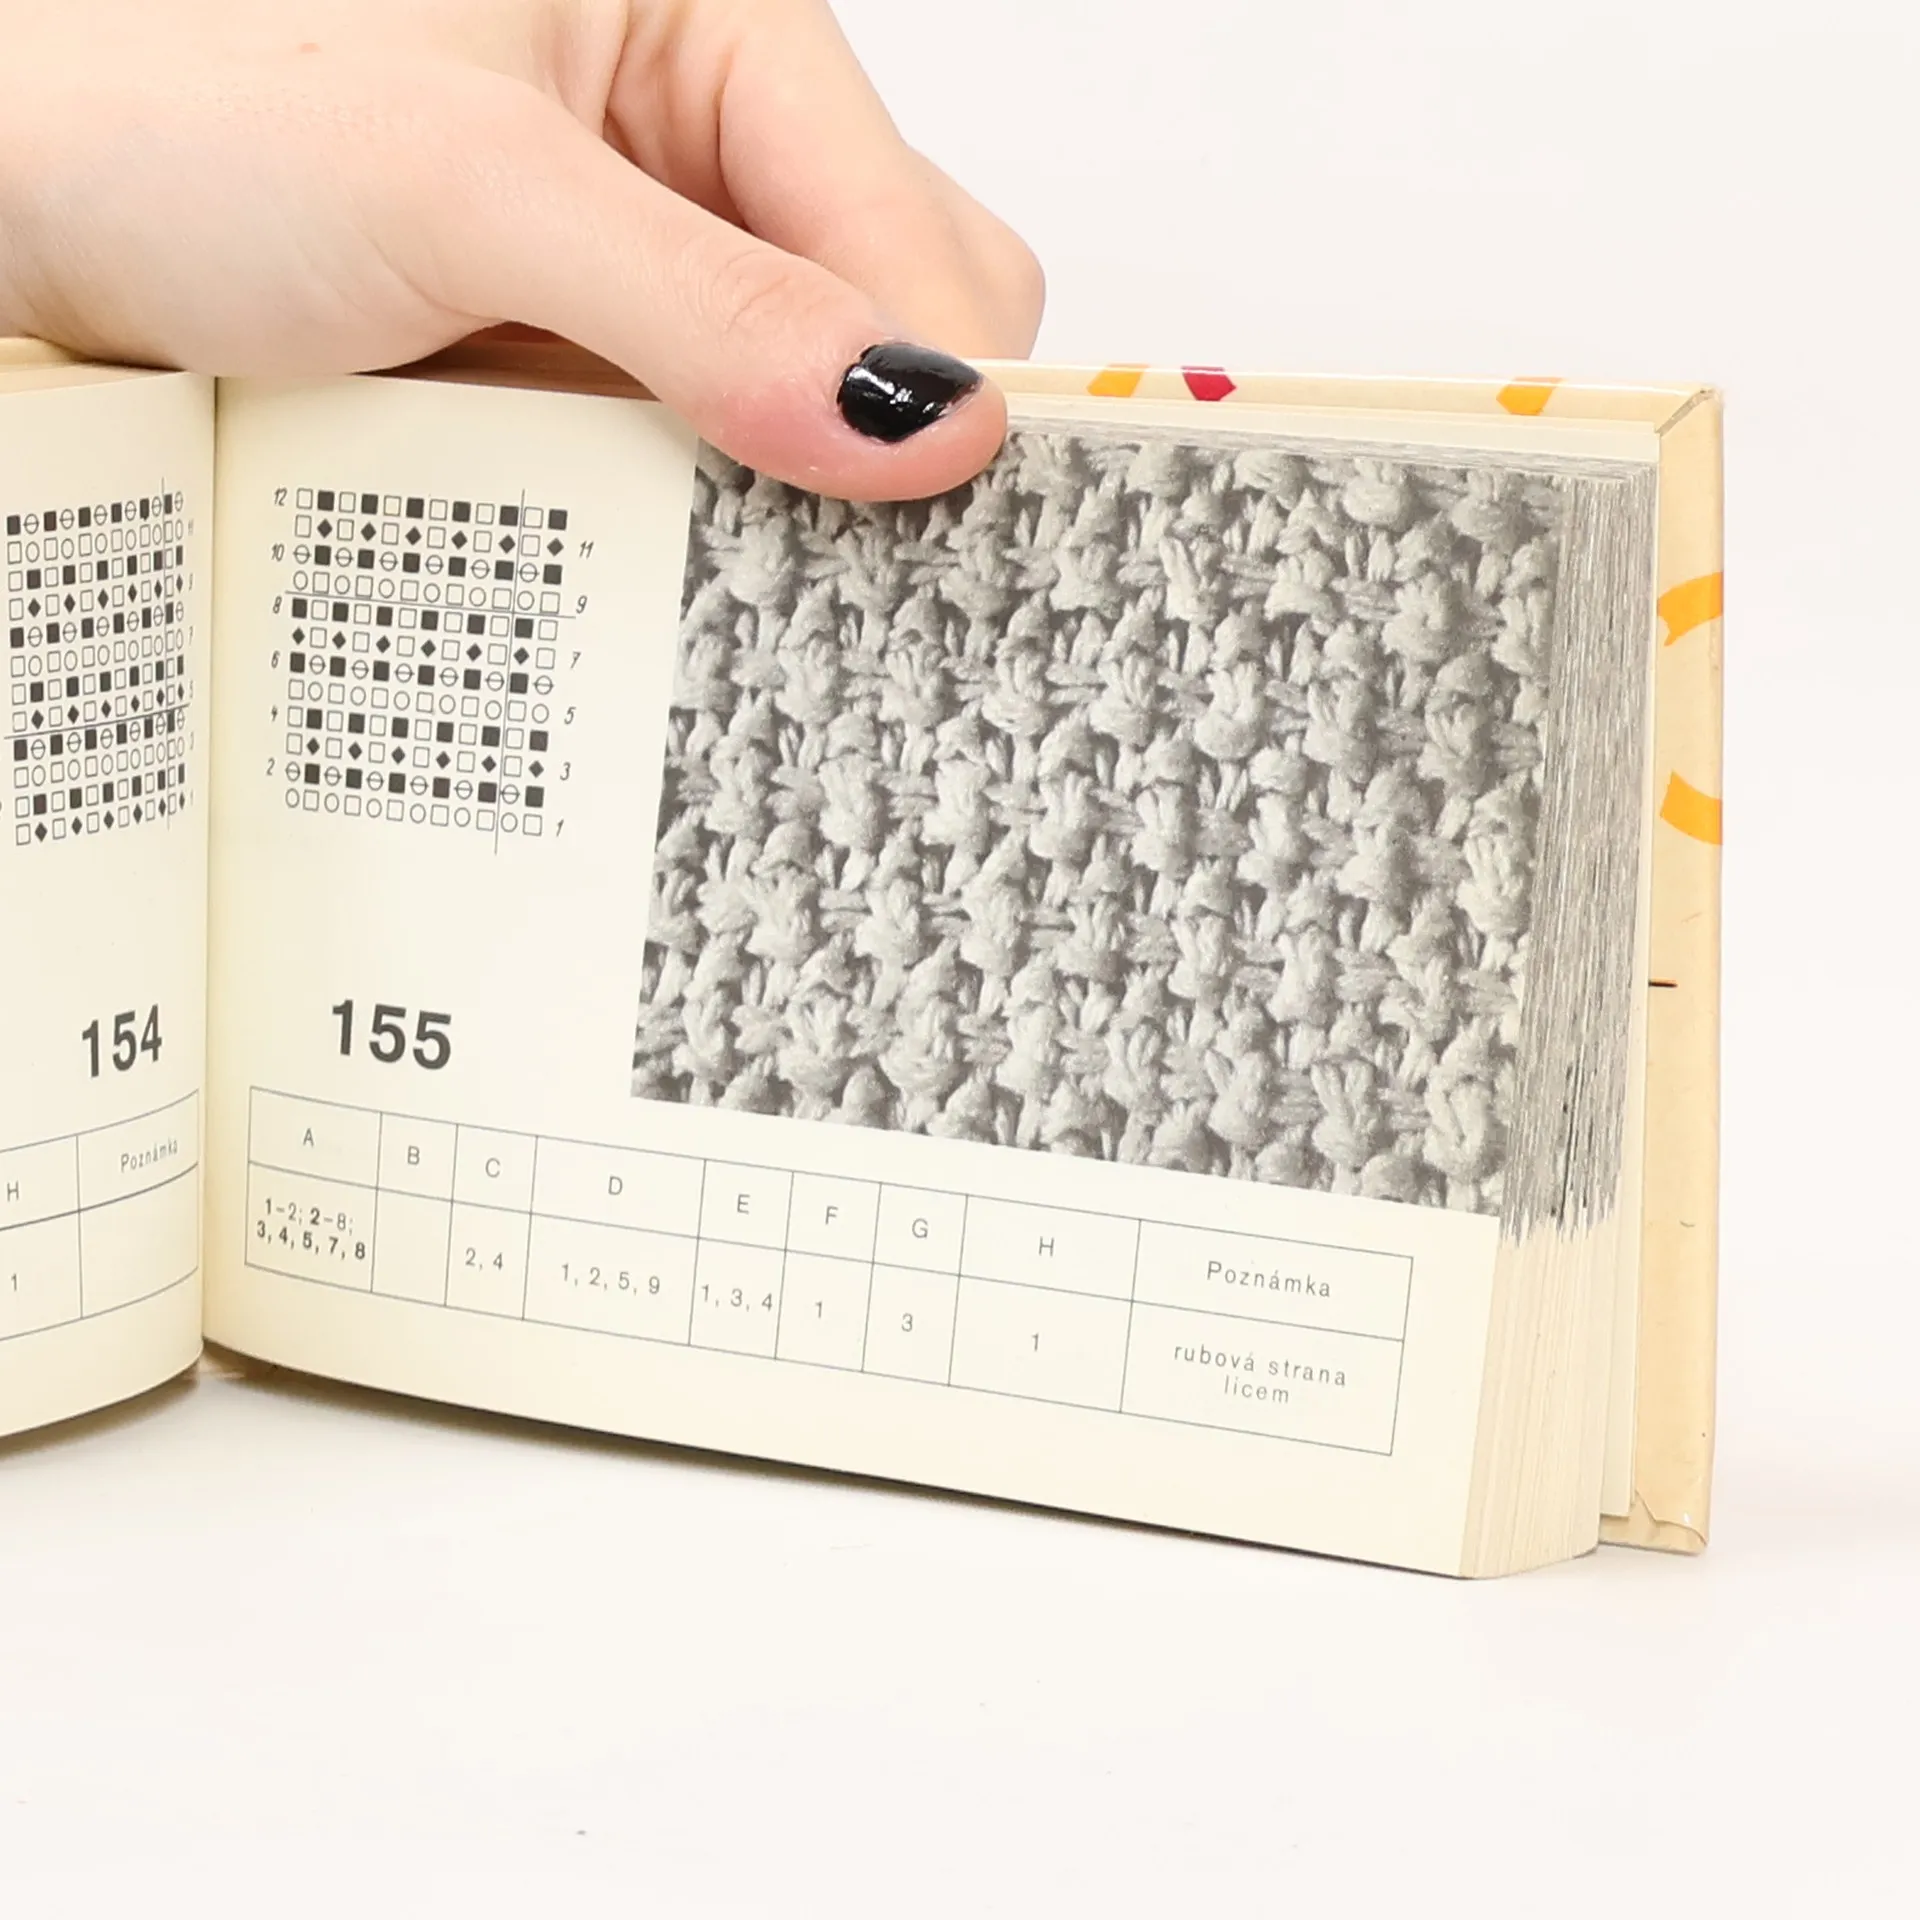 154
H
Poznámka
1
12
11
10
9
8
7
6
5
4
3
2
1
155
A B C D E F G H Poznámka
1-2; 2-8;
3, 4, 5, 7, 8
2, 4
1, 2, 5, 9
1, 3, 4
1
3
1
rubová strana
lícem